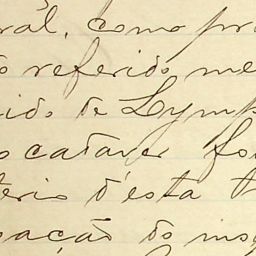 ral, como pro
o referido me
ido de Lymp
o cadaver fo
terio d'esta V
pação do mes